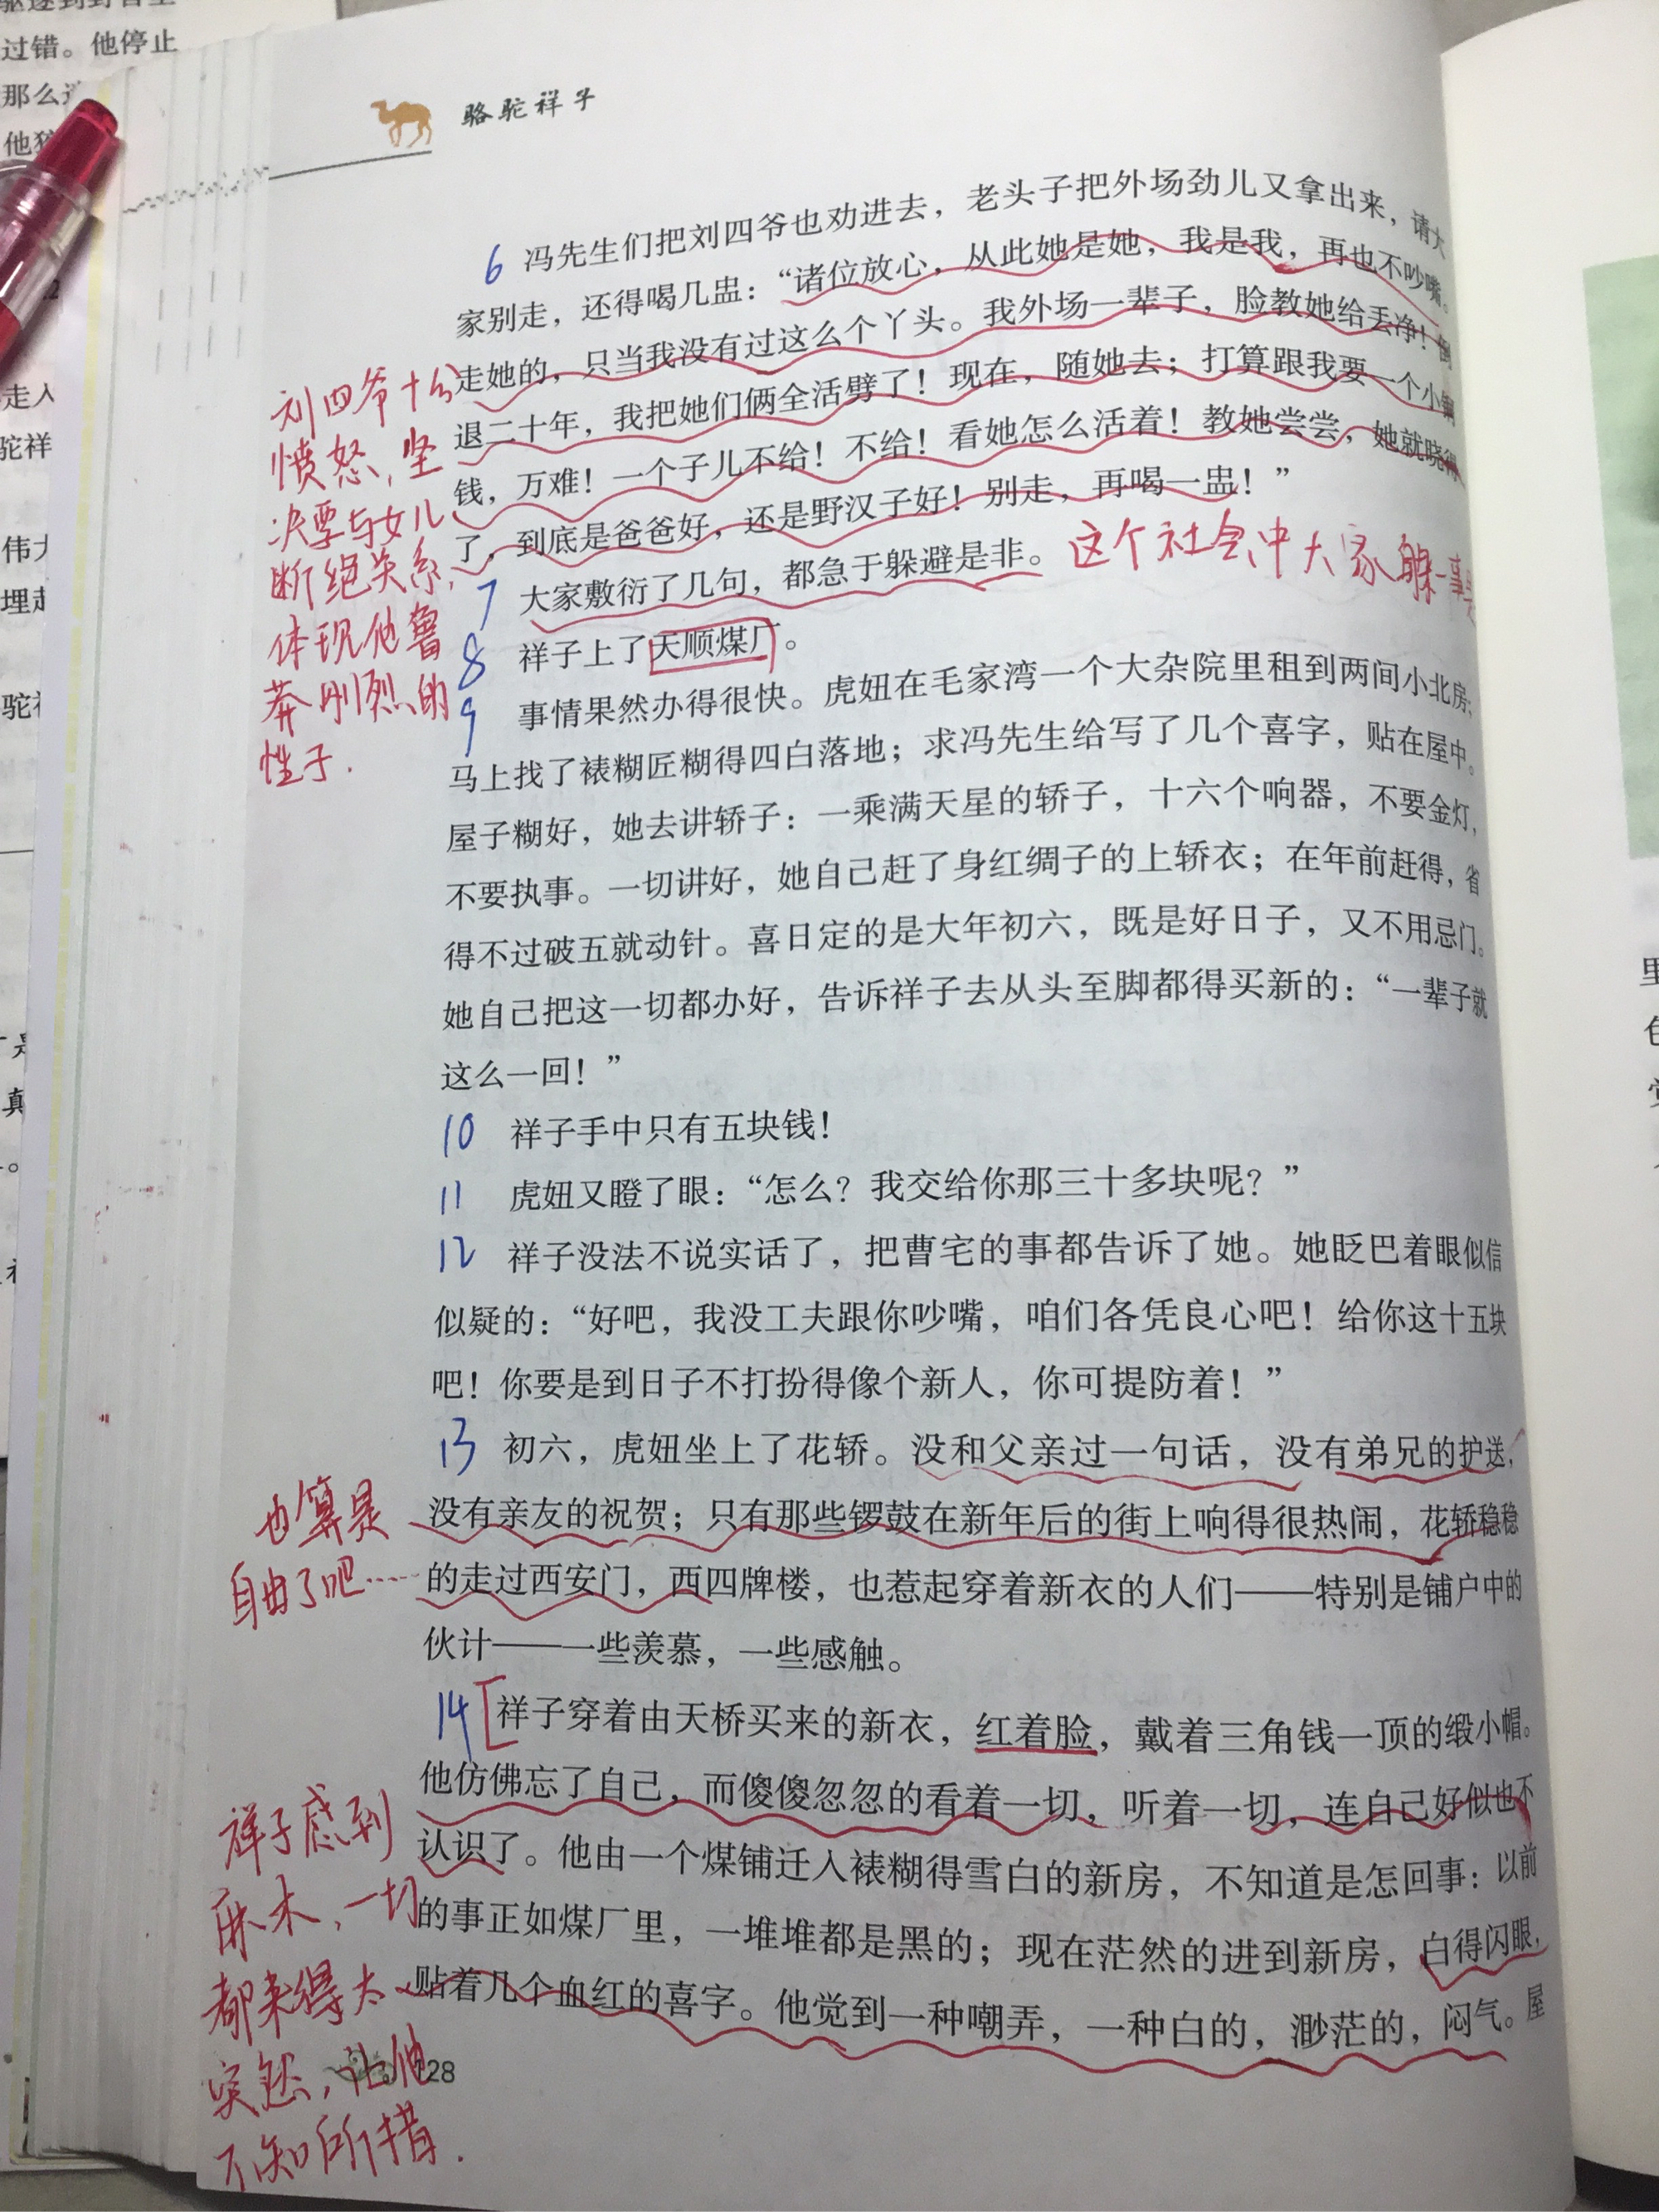 过错。他停止
那么
走人
驼祥
骆驼祥子
6 冯先生们把刘四爷也劝进去，老头子把外场劲儿又拿出来，请大
家别走，还得喝几盅：“诸位放心，从此她是她，我是我，再也不吵嘴。
走她的，只当我没有过这么个丫头。我外场一辈子，脸教她给丢净！倒
退二十年，我把她们俩全活劈了！现在，随她去；打算跟我要一个小铜
钱，万难！一个子儿不给！不给！看她怎么活着！教她尝尝，她就晓得
了，到底是爸爸好，还是野汉子好！别走，再喝一盅！”
7 大家敷衍了几句，都急于躲避是非。
这个社会中大家躲事
8 祥子上了天顺煤厂。
9 事情果然办得很快。虎妞在毛家湾一个大杂院里租到两间小北房；
马上找了裱糊匠糊得四白落地；求冯先生给写了几个喜字，贴在屋中。
屋子糊好，她去讲轿子：一乘满天星的轿子，十六个响器，不要金灯，
不要执事。一切讲好，她自己赶了身红绸子的上轿衣；在年前赶得，省
得不过破五就动针。喜日定的是大年初六，既是好日子，又不用忌门。
她自己把这一切都办好，告诉祥子去从头至脚都得买新的：“一辈子就
这么一回！”
10 祥子手中只有五块钱！
11 虎妞又瞪了眼：“怎么？我交给你那三十多块呢？”
12 祥子没法不说实话了，把曹宅的事都告诉了她。她眨巴着眼似信
似疑的：“好吧，我没工夫跟你吵嘴，咱们各凭良心吧！给你这十五块
吧！你要是到日子不打扮得像个新人，你可提防着！”
13 初六，虎妞坐上了花轿。没和父亲过一句话，没有弟兄的护送，
没有亲友的祝贺；只有那些锣鼓在新年后的街上响得很热闹，花轿稳稳
的走过西安门，西四牌楼，也惹起穿着新衣的人们——特别是铺户中的
伙计——一些羡慕，一些感触。
14 祥子穿着由天桥买来的新衣，红着脸，戴着三角钱一顶的缎小帽。
他仿佛忘了自己，而傻傻忽忽的看着一切，听着一切，连自己好似也不
认识了。他由一个煤铺迁入裱糊得雪白的新房，不知道是怎回事：以前
的事正如煤厂里，一堆堆都是黑的；现在茫然的进到新房，白得闪眼，
贴着几个血红的喜字。他觉到一种嘲弄，一种白的，渺茫的，闷气。屋
28
刘四爷十分
愤怒，坚
决要与女儿
断绝关系，
体现他鲁
莽刚烈的
性子.
也算是
自由了吧……
祥子感到
麻木，一切
都来得太
突然，让他
不知所措.